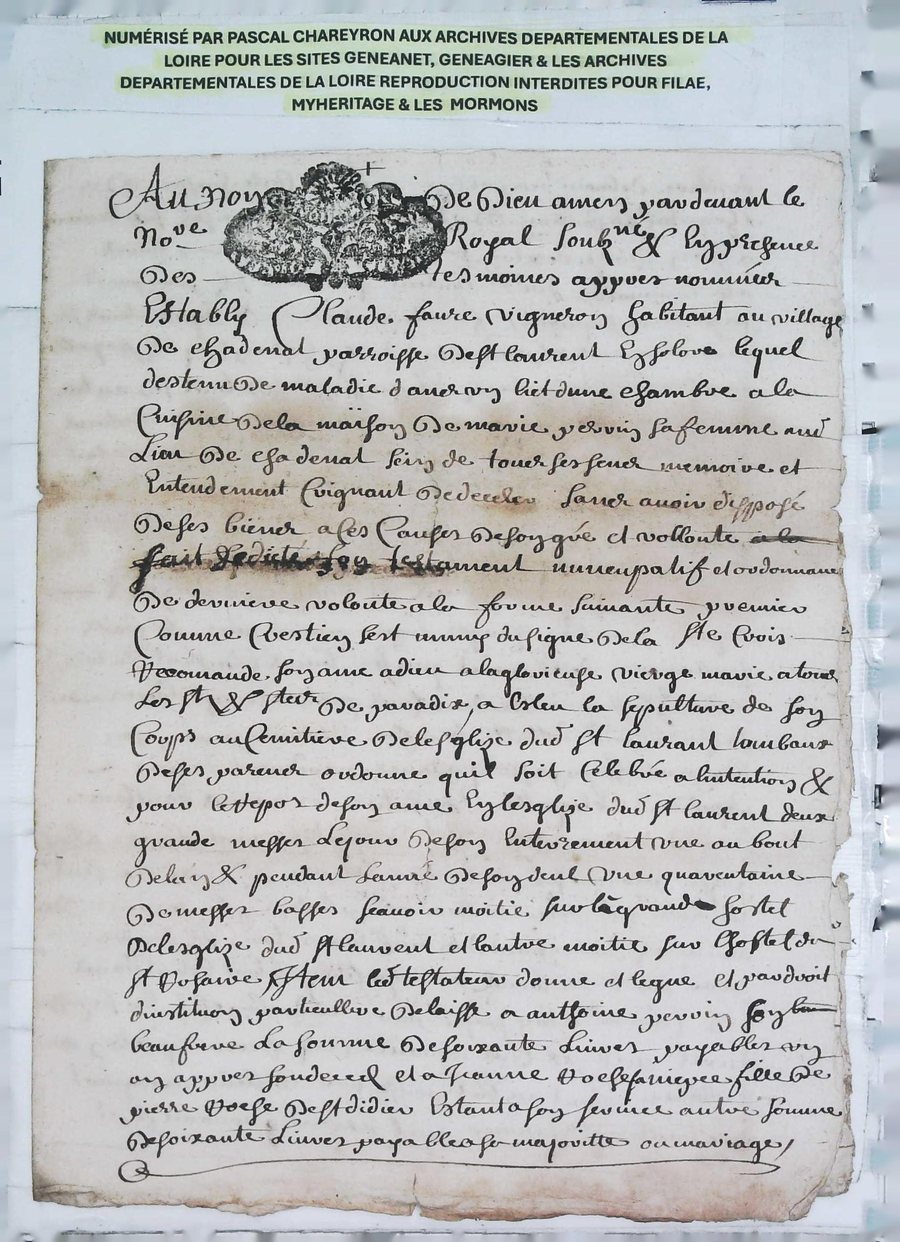 NUMÉRISÉ PAR PASCAL CHAREYRON AUX ARCHIVES DEPARTEMENTALES DE LA
LOIRE POUR LES SITES GENEANET, GENEAGIER & LES ARCHIVES
DEPARTEMENTALES DE LA LOIRE REPRODUCTION INTERDITES POUR FILAE,
MYHERITAGE & LES MORMONS
Au Nom De Dieu amen pardevant le
No.re Royal soubz.né & En presence
Des tesmoines appres nommées
Establÿ Claude faure vigneron habitant au village
De chadenat parroisse De st laurent En solore lequel
destenu De maladie dans un lict dune chambre a la
Cuisine De la maison De marie perrin sa femme aud
Lieu De chadenat sein de tous ses sens memoire et
Entendement Creignant De deceder sans avoir disposé
De ses biens a Ces Causes De son gré et vollonte
fait & dicté son testament nuncupatif et ordonnance
De derniere volonte a la forme suivante premier
Comme Crestien sest muny du signe De la ste Croix
Recomande son ame a dieu a la glorieuse vierge marie a tous
Les sts & stes De paradix, a Esleu la sepulture de son
Corps au Cemitiere De lesglize dud st laurant tombaux
De ses parens ordonne quil soit Celebré a lintention &
pour le Repos de son ame En lesglize dud st laurent deux
grande messes Le jour De son Enterrement une au bout
De lan & pendant lanné De son deul Une quarentaine
De messes basses scavoir moitie sur le grand hostel
De lesglize dud st laurent et lautre moitie sur lhostel du
st Rosaire Item led testateur donne et legue et par droit
dinstitution particulliere Delaisse a anthoine perrin son
beaufrere La somme De soixante Livres payables un
an appres son deced et a Jeanne Roche sa niepce fille De
pierre Roche De st didier Estant a son service autre somme
De soixante Livres payable a sa majoritte ou mariage /